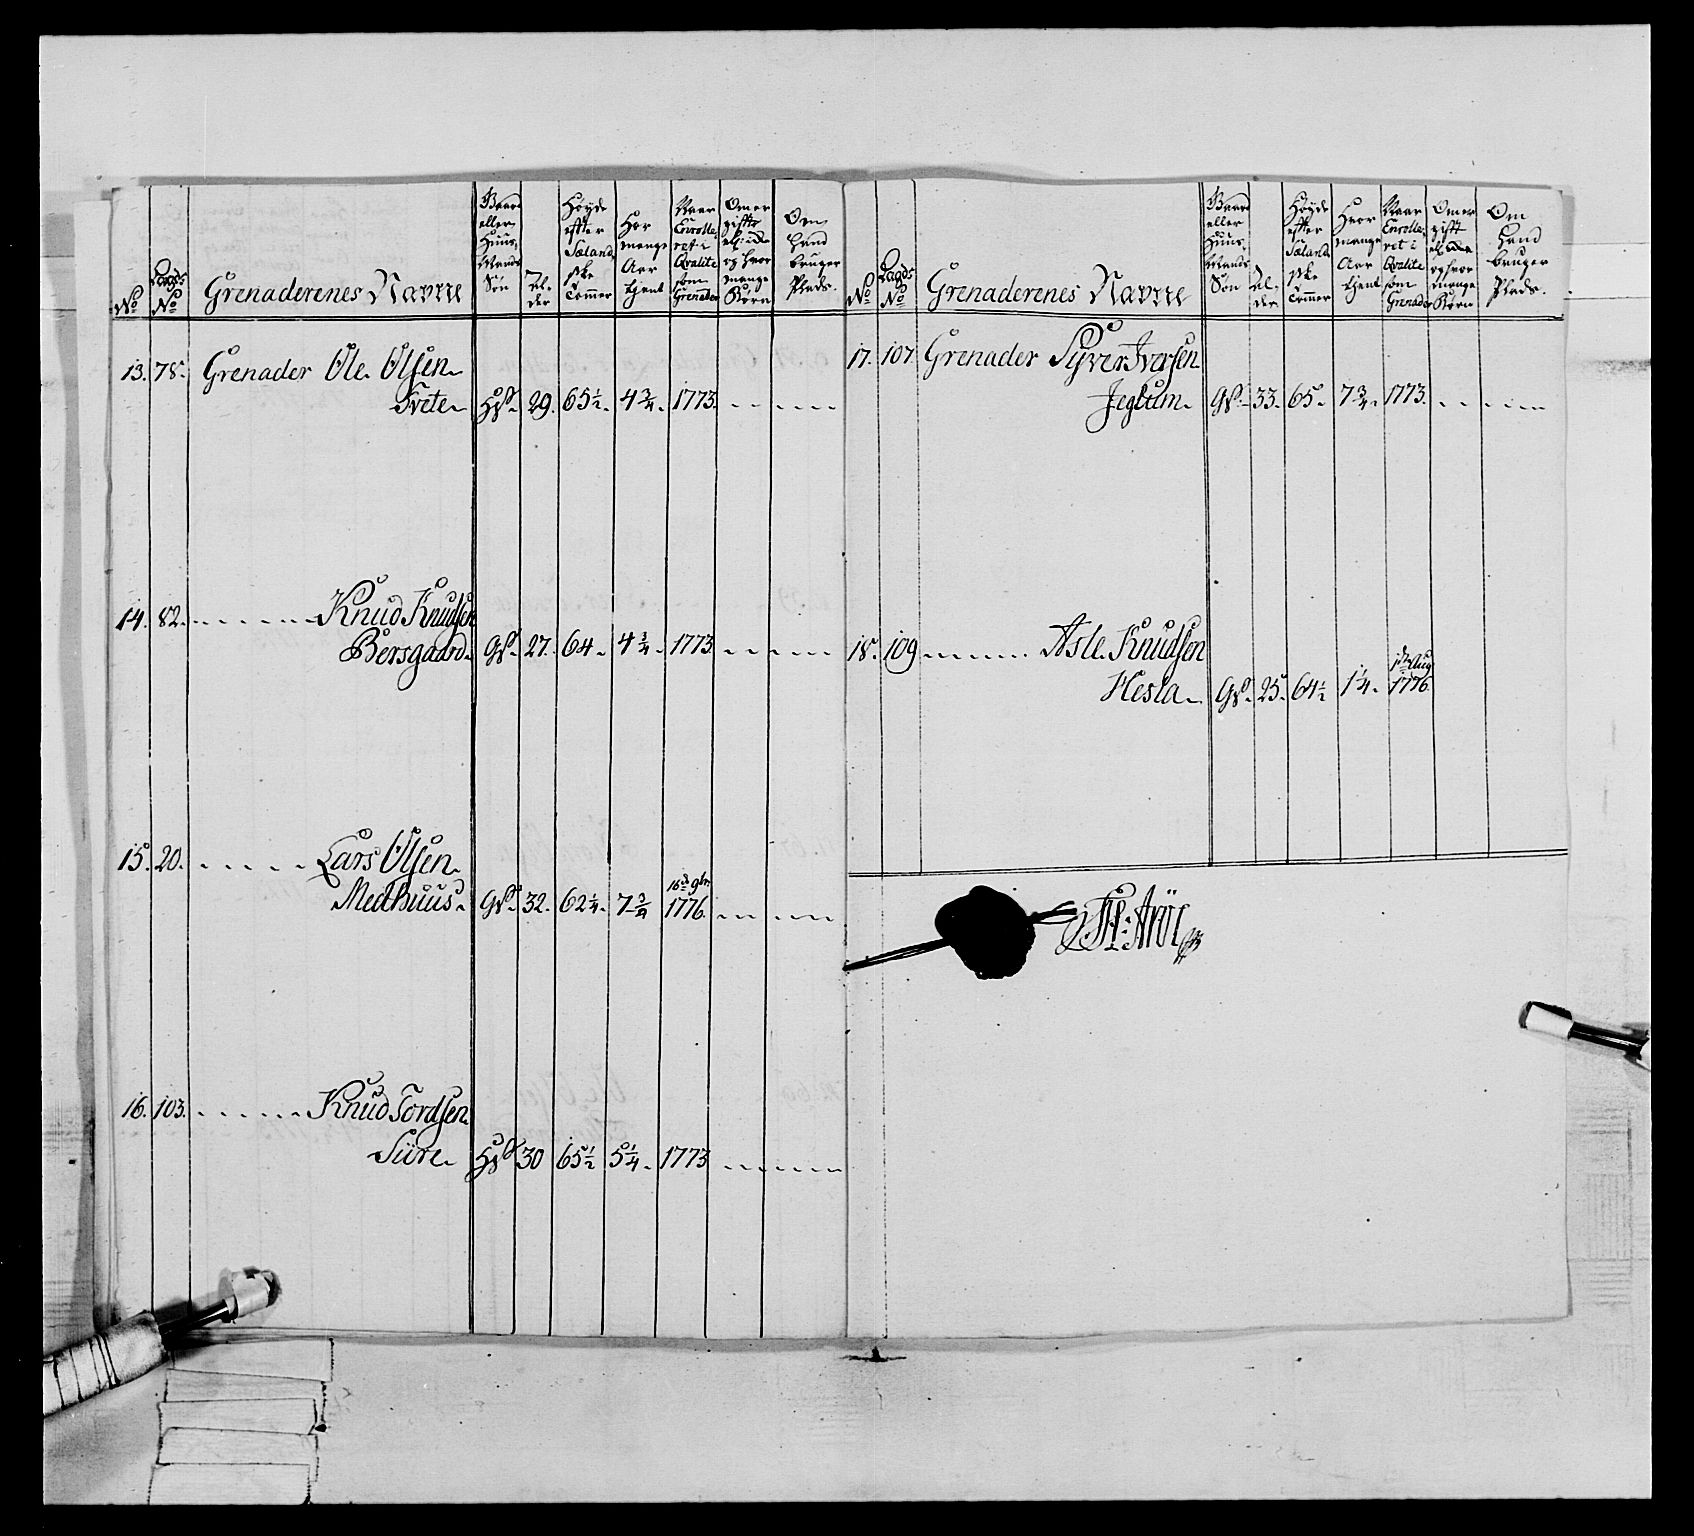 No
Lægds No
Grenaderenes Navne
Gaard eller Huus Mands Søn
Al- der
Høyde efter Sælandske Tommer
Hor mange Aar tient
Naar Enrolleret i Qvalite som Grenader
Om er gifft og hvor mange Børn
Om Land bruger Plads.
13. 78. Grenader Ole Olsen
Tvete HS. 29. 65½ 4¾. 1773.
14. 82. Knud Knudsen
Bersgaard GS. 27. 64. 4¾. 1773
15. 20. Lars Olsen
Medhuus. GS. 32. 62¼. 7¾ 16d 9br. 1776.
16. 103. Knud Tordsen
Siire HS 30 65½ 5¼. 1773
No
Lægds No
Grenaderenes Navne
Gaard eller Huus Mands Søn
Al- der
Høyde efter Sælandske Tommer
Hvor mange Aar tient
Naar Enrolleret i Qvalite som Grenader
Om er gift og hvor mange Børn
Om Land bruger Plads.
17. 107. Grenader Syver Iversen
Jeglum GS. 33. 65. 7¾. 1773.
18. 109 Asle Knudsen
Hesla GS. 25. 64½ 1¼. Aug 1776.